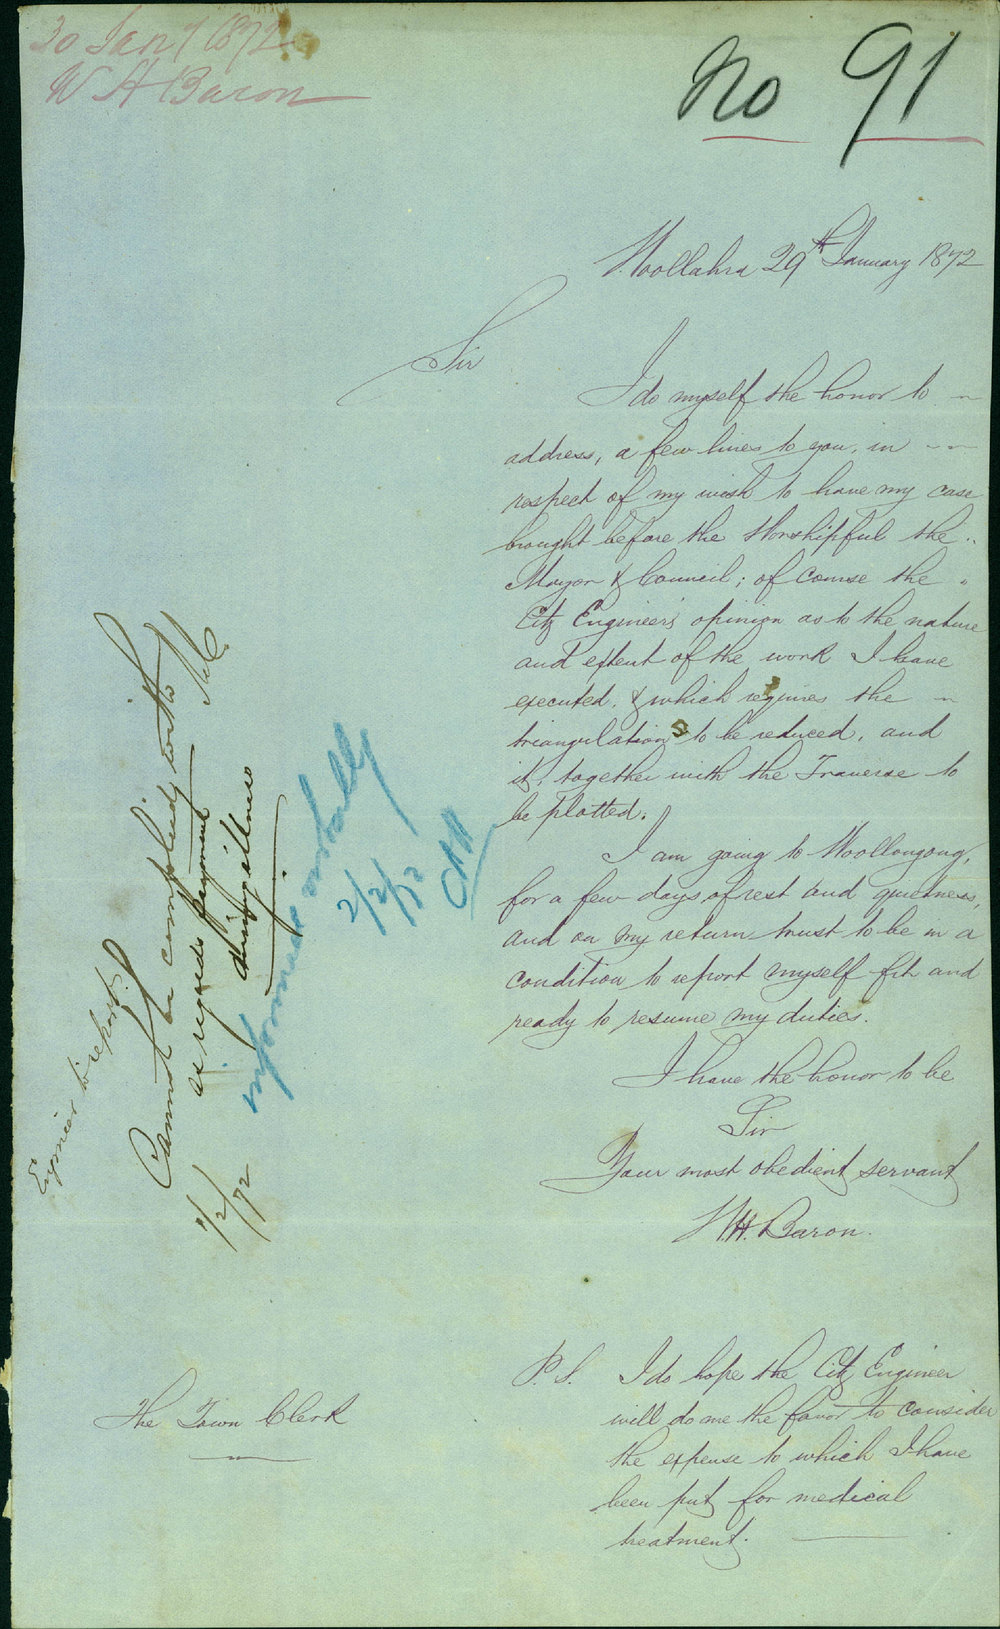 30 Jany 1872
W H Baron
No 91
Woollahra 29th January 1872
Sir
I do myself the honor to
address, a few lines to you, in
respect of my wish to have my case
brought before the Worshipful the
Mayor & Council; of course the
City Engineers opinion as to the nature
and extent of the work I have
executed. & which requires the
triangulation to be reduced, and
it, together with the Traverse to
be plotted.
I am going to Woollongong,
for a few days of rest and quietness,
and on my return trust to be in a
condition to report myself fit and
ready to resume my duties.
I have the honor to be
Sir
Your most obedient servant
W.H. Baron.
P.S. I do hope the City Engineer
will do me the favor to consider
the expense to which I have
been put for medical
treatment.
The Town Clerk
Engineer to report
Cannot be complied with
as regards payment
during illness
1/2/72
informed verbally
2/2/72